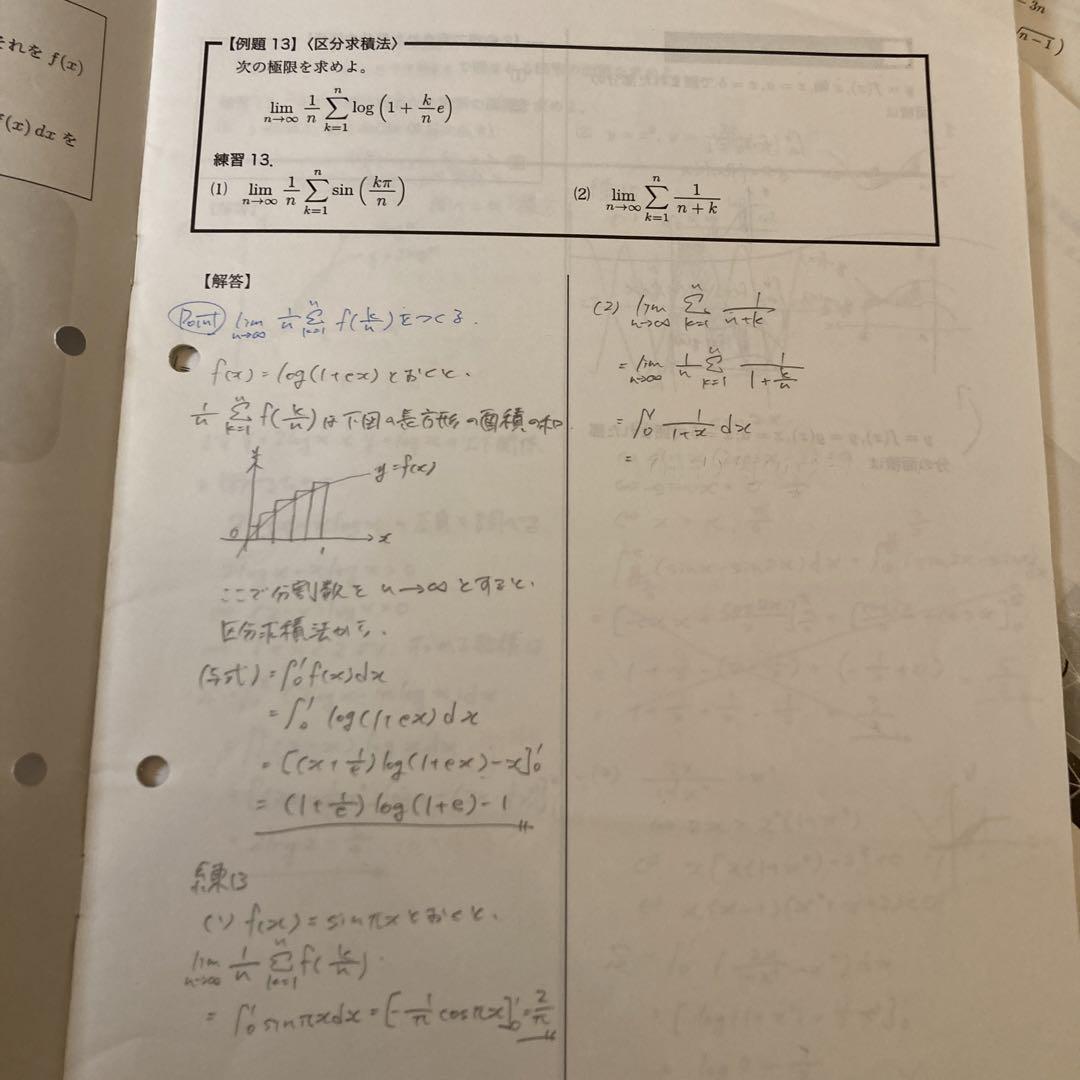 それを f(x)
f(x) dx を
- 3n
√n-1)
【例題 13】〈区分求積法〉
次の極限を求めよ。
lim_{n→∞} 1/n Σ_{k=1}^{n} log (1 + k/n e)
練習 13.
(1) lim_{n→∞} 1/n Σ_{k=1}^{n} sin (kπ/n)
(2) lim_{n→∞} Σ_{k=1}^{n} 1/(n + k)
【解答】
Point lim_{n→∞} 1/n Σ_{k=1}^{n} f(k/n) をつくる.
f(x) = log(1+ex) とおくと、
1/n Σ_{k=1}^{n} f(k/n) は下図の長方形の面積の和
y
y=f(x)
0
1
x
ここで分割数を n→∞ とすると、
区分求積法から、
(与式) = ∫_0^1 f(x)dx
= ∫_0^1 log(1+ex)dx
= [(x+1/e)log(1+ex)-x]_0^1
= (1+1/e)log(1+e)-1
練13
(1) f(x) = sinπx とおくと、
lim_{n→∞} 1/n Σ_{k=1}^{n} f(k/n)
= ∫_0^1 sinπxdx = [-1/π cosπx]_0^1 = 2/π
(2) lim_{n→∞} Σ_{k=1}^{n} 1/(n+k)
= lim_{n→∞} 1/n Σ_{k=1}^{n} 1/(1+k/n)
= ∫_0^1 1/(1+x) dx
=